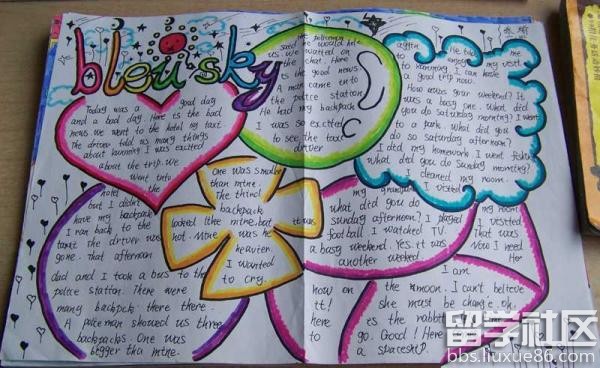 bleu sky
Today was a good day
and a bad day. Here is the bad
news. We went to the hotel by taxi.
The driver told us many things
about kunming I was excited
about the trip. We
went into
the
hotel
but I didn't
have my backpack
I ran back to the
taxi the driver was
gone. That afternoon
dad and I took a bus to the
police station. There were
many backpcks there there.
A policeman showed us three
backpacks. One was
bigger tha mine.
One was smaller
than mine.
The third
backpack
looked like mine. but it was
not. Mine was
heavier.
I wanted
to cry.
The policeman
said he would help
us. We waited on
that. Here
is the good news
A man came into
the police station
He had my backpack
I was so excited
to see the taxi
driver
again. He told me
to enjoy my visit
to kunming I can have
a good trip now.
How was your weekend? It
was a busy one. What did
you do Saturday morning? I went
to a park. What did you
do so Saturday afternoon?
I did my homework I went fishing
What did you do Sunday morning?
I cleaned my room.
I visited
my grandparents
what did you do
sunday afternoon? I played
football. I watched TV.
a busy weekend. Yes. it was
another weeked
my room
I visited
That was
Now I need
I am
now on the moon. I can't believe
it! she must be chang'e. oh,
here is the rabbit
to go. Good! Here
a spaceship.
留学社区
bbs.liuxue86.com